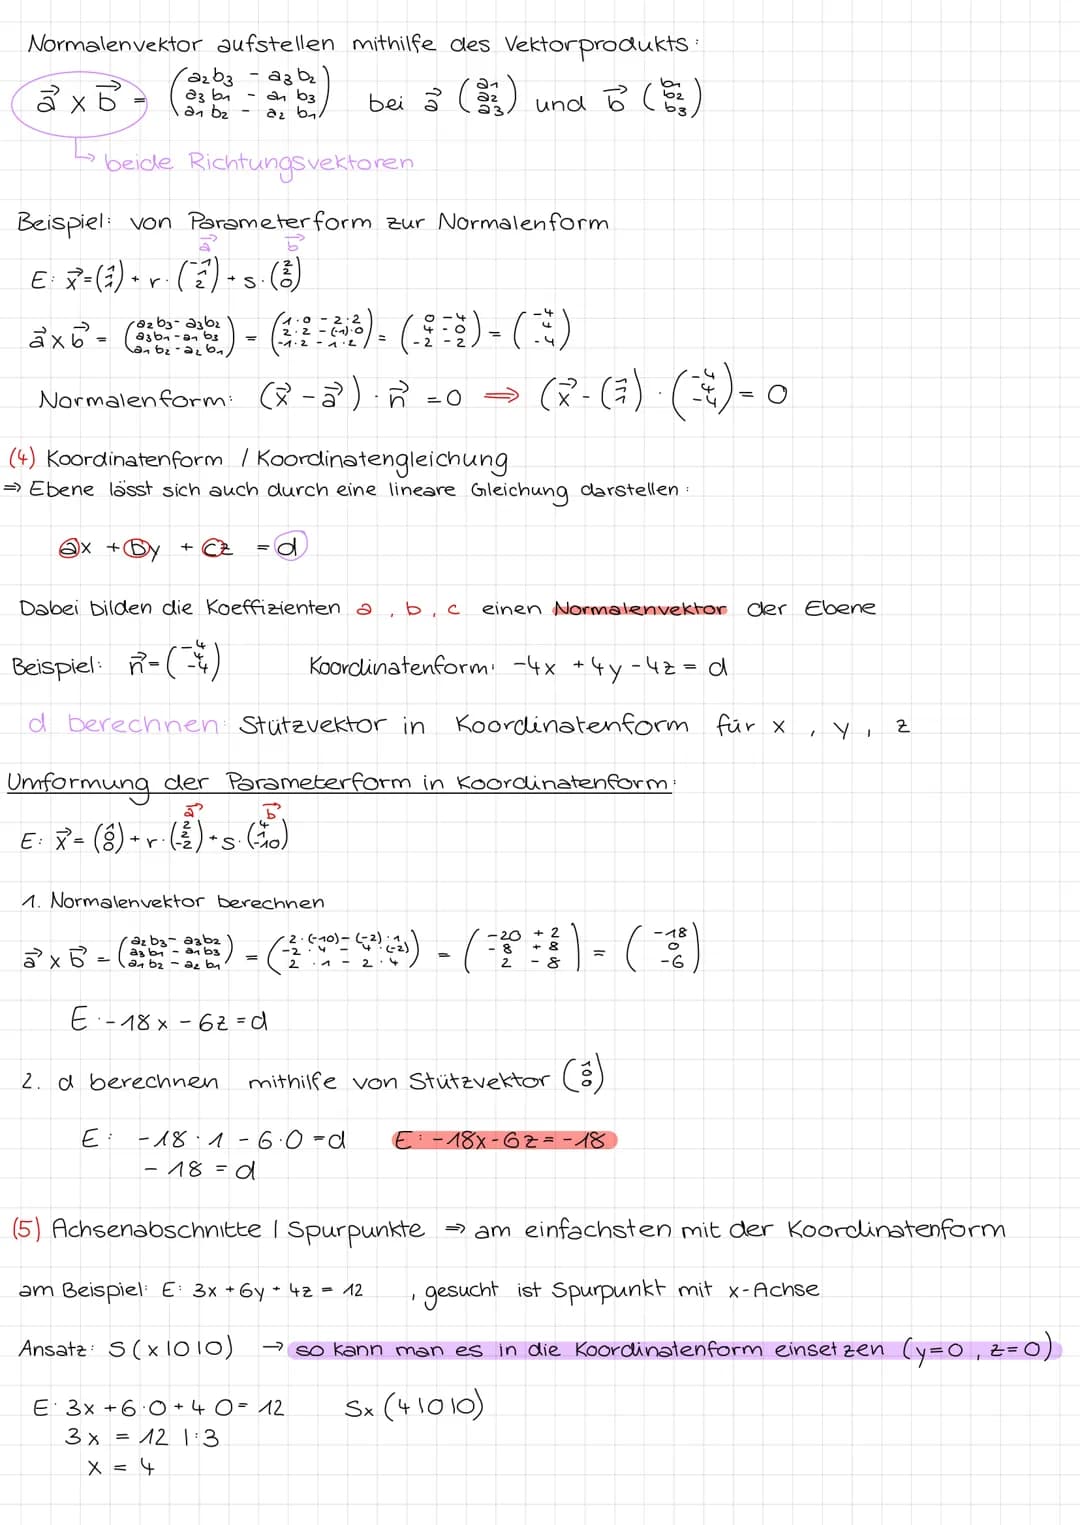 Normalenvektor aufstellen mithilfe des Vektorprodukts:
a⃗ x b⃗ = (a₂b₃ - a₃b₂ / a₃b₁ - a₁b₃ / a₁b₂ - a₂b₁) bei a⃗ (a₁ / a₂ / a₃) und b⃗ (b₁ / b₂ / b₃)
↳ beide Richtungsvektoren
Beispiel: von Parameterform zur Normalenform
a⃗ b⃗
+ r · (-1 / 1 / 2) + s · (2 / 2 / 0)
a⃗ x b⃗ = (a₂b₃ - a₃b₂ / a₃b₁ - a₁b₃ / a₁b₂ - a₂b₁) = (1·0 - 2·2 / 2·2 - (-1)·0 / -1·2 - 1·2) = (0 - 4 / 4 - 0 / -2 - 2) = (-4 / 4 / -4)
Normalenform: (x⃗ - a⃗) · n⃗ = 0 ⇒ · (-4 / 4 / -4) = 0
(4) Koordinatenform / Koordinatengleichung
⇒ Ebene lässt sich auch durch eine lineare Gleichung darstellen:
ax + by + cz = d
Dabei bilden die Koeffizienten a, b, c einen Normalenvektor der Ebene
Beispiel: n⃗ = (-4 / 4 / -4) Koordinatenform: -4x + 4y - 4z = d
d berechnen: Stützvektor in Koordinatenform für x, y, z
Umformung der Parameterform in Koordinatenform:
a⃗ b⃗
E: x⃗ = (1 / 0 / 0) + r · (2 / 2 / -2) + s · (4 / 1 / -10)
1. Normalenvektor berechnen
a⃗ x b⃗ = (a₂b₃ - a₃b₂ / a₃b₁ - a₁b₃ / a₁b₂ - a₂b₁) = (2·(-10) - (-2)·1 / -2·4 - 4·(-2) / 2·1 - 2·4) = (-20 + 2 / -8 + 8 / 2 - 8) = (-18 / 0 / -6)
E: -18x - 6z = d
2. d berechnen mithilfe von Stützvektor (1 / 0 / 0)
E: -18 · 1 - 6·0 = d E: -18x - 6z = -18
-18 = d
(5) Achsenabschnitte | Spurpunkte ⇒ am einfachsten mit der Koordinatenform
am Beispiel: E: 3x + 6y + 4z = 12, gesucht ist Spurpunkt mit x-Achse
Ansatz: S (x|0|0) → so kann man es in die Koordinatenform einsetzen (y=0, z=0)
E: 3x + 6·0 + 4·0 = 12 Sx (4|0|0)
3x = 12 |:3
x = 4